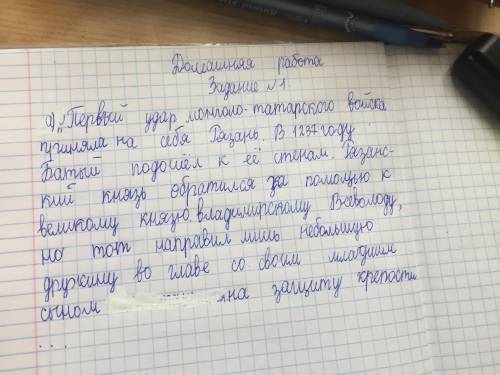 Домашняя работа
Задание №1
а) „Первый удар монголо-татарского войска
приняла на себя Рязань. В 1237 году
Батый подошёл к её стенам. Рязанс-
кий князь обратился за помощью к
великому князю владимирскому Всеволоду,
но тот направил лишь небольшую
дружину во главе со своим младшим
сыном на защиту крепости
...